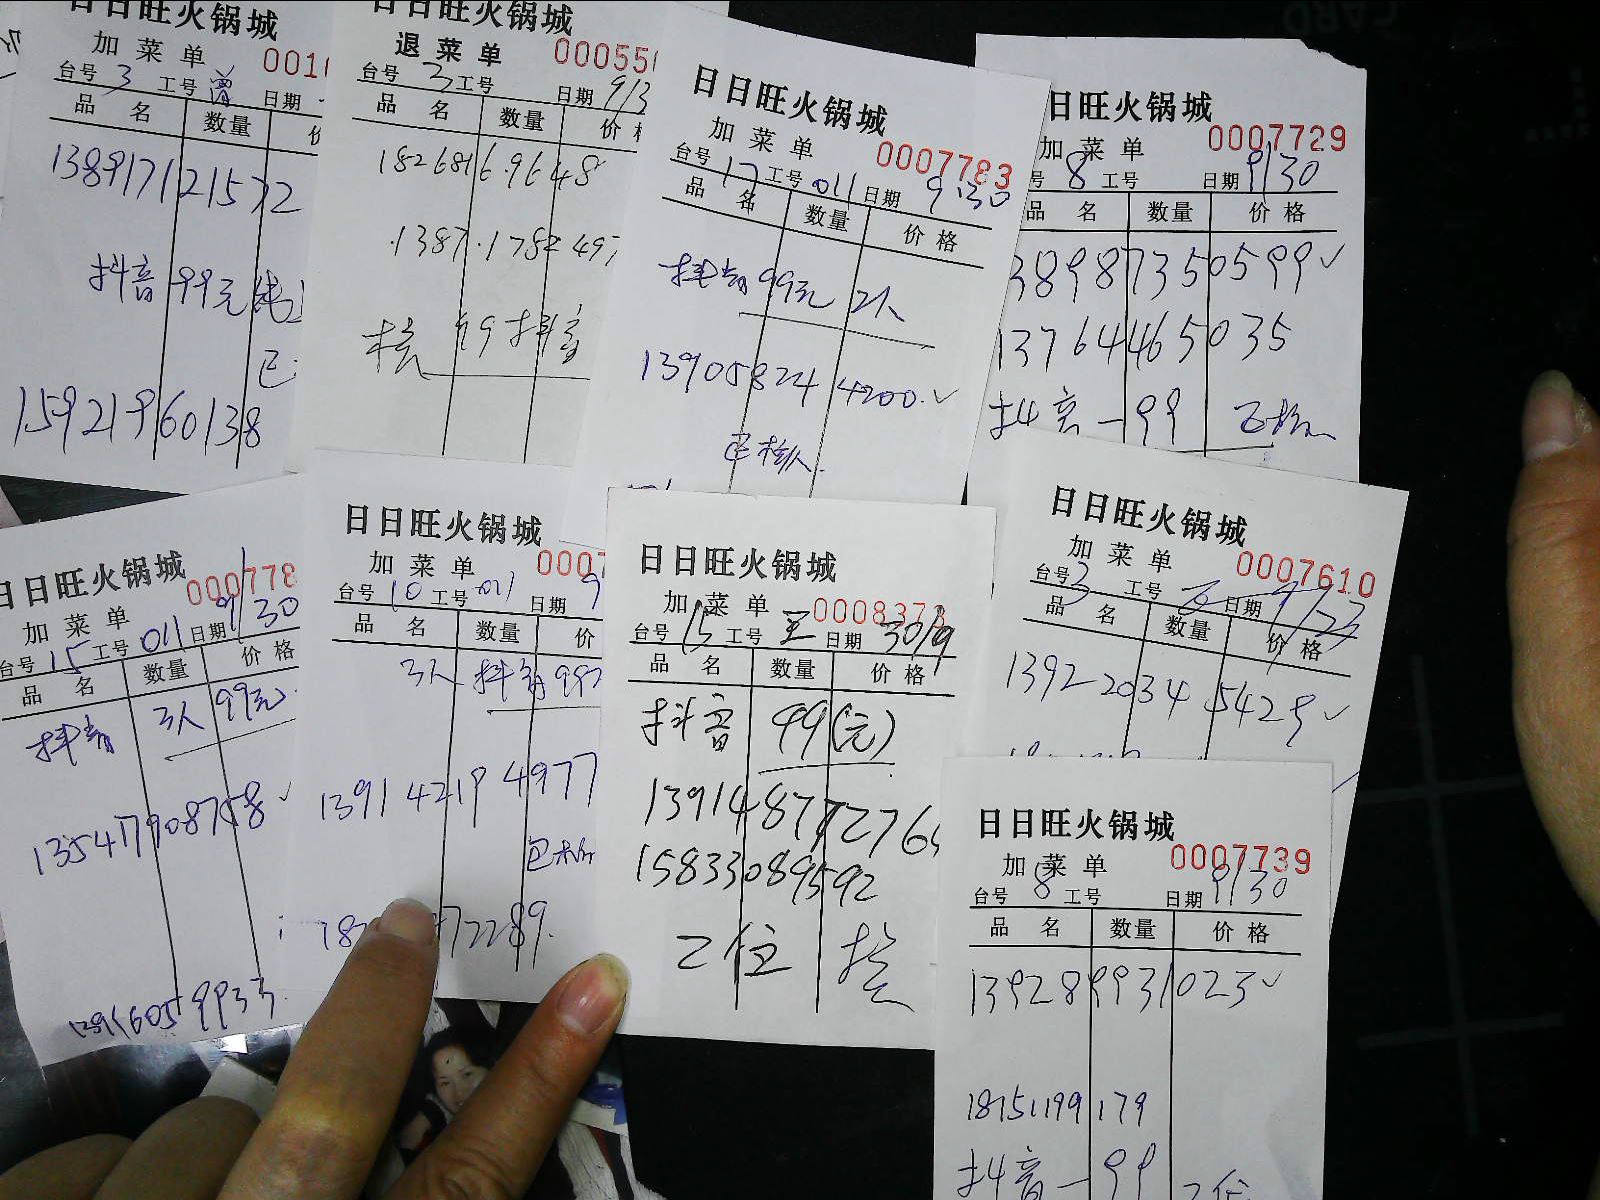 日日旺火锅城
加菜单
台号 3 工号 曾 日期
品名 数量
138917121572
抖音 99元
15921960138
日日旺火锅城
退菜单 000550
台号 3 工号 日期 9/3
品名 数量 价
18268169648
1387.1782497
核 99抖音
日日旺火锅城
加菜单 0007783
台号 17 工号 011 日期 9.30
品名 数量 价格
抖音 99元 2人
139058244200.✓
已核从.
日日旺火锅城
加菜单 0007729
号 8 工号 日期 9/30
品名 数量 价格
38987350599✓
13764465035
抖音一99 已核
日日旺火锅城
加菜单 000778
台号 15 工号 011 日期 9/30
品名 数量 价格
抖音 3人 99元
135417908758✓
日日旺火锅城
加菜单 0007
台号 10 工号 011 日期 9
品名 数量 价
3人 抖音 99
139142194977
72289.
日日旺火锅城
加菜单 0008373
台号 15 工号 王 日期 30/9
品名 数量 价格
抖音 99(元)
15833089592
2位 核
日日旺火锅城
加菜单 0007610
台号 3 工号 日期 9/23
品名 数量 价格
13922034 5429✓
日日旺火锅城
加菜单 0007739
台号 8 工号 日期 9/30
品名 数量 价格
139289931023✓
18151199179
抖音一99